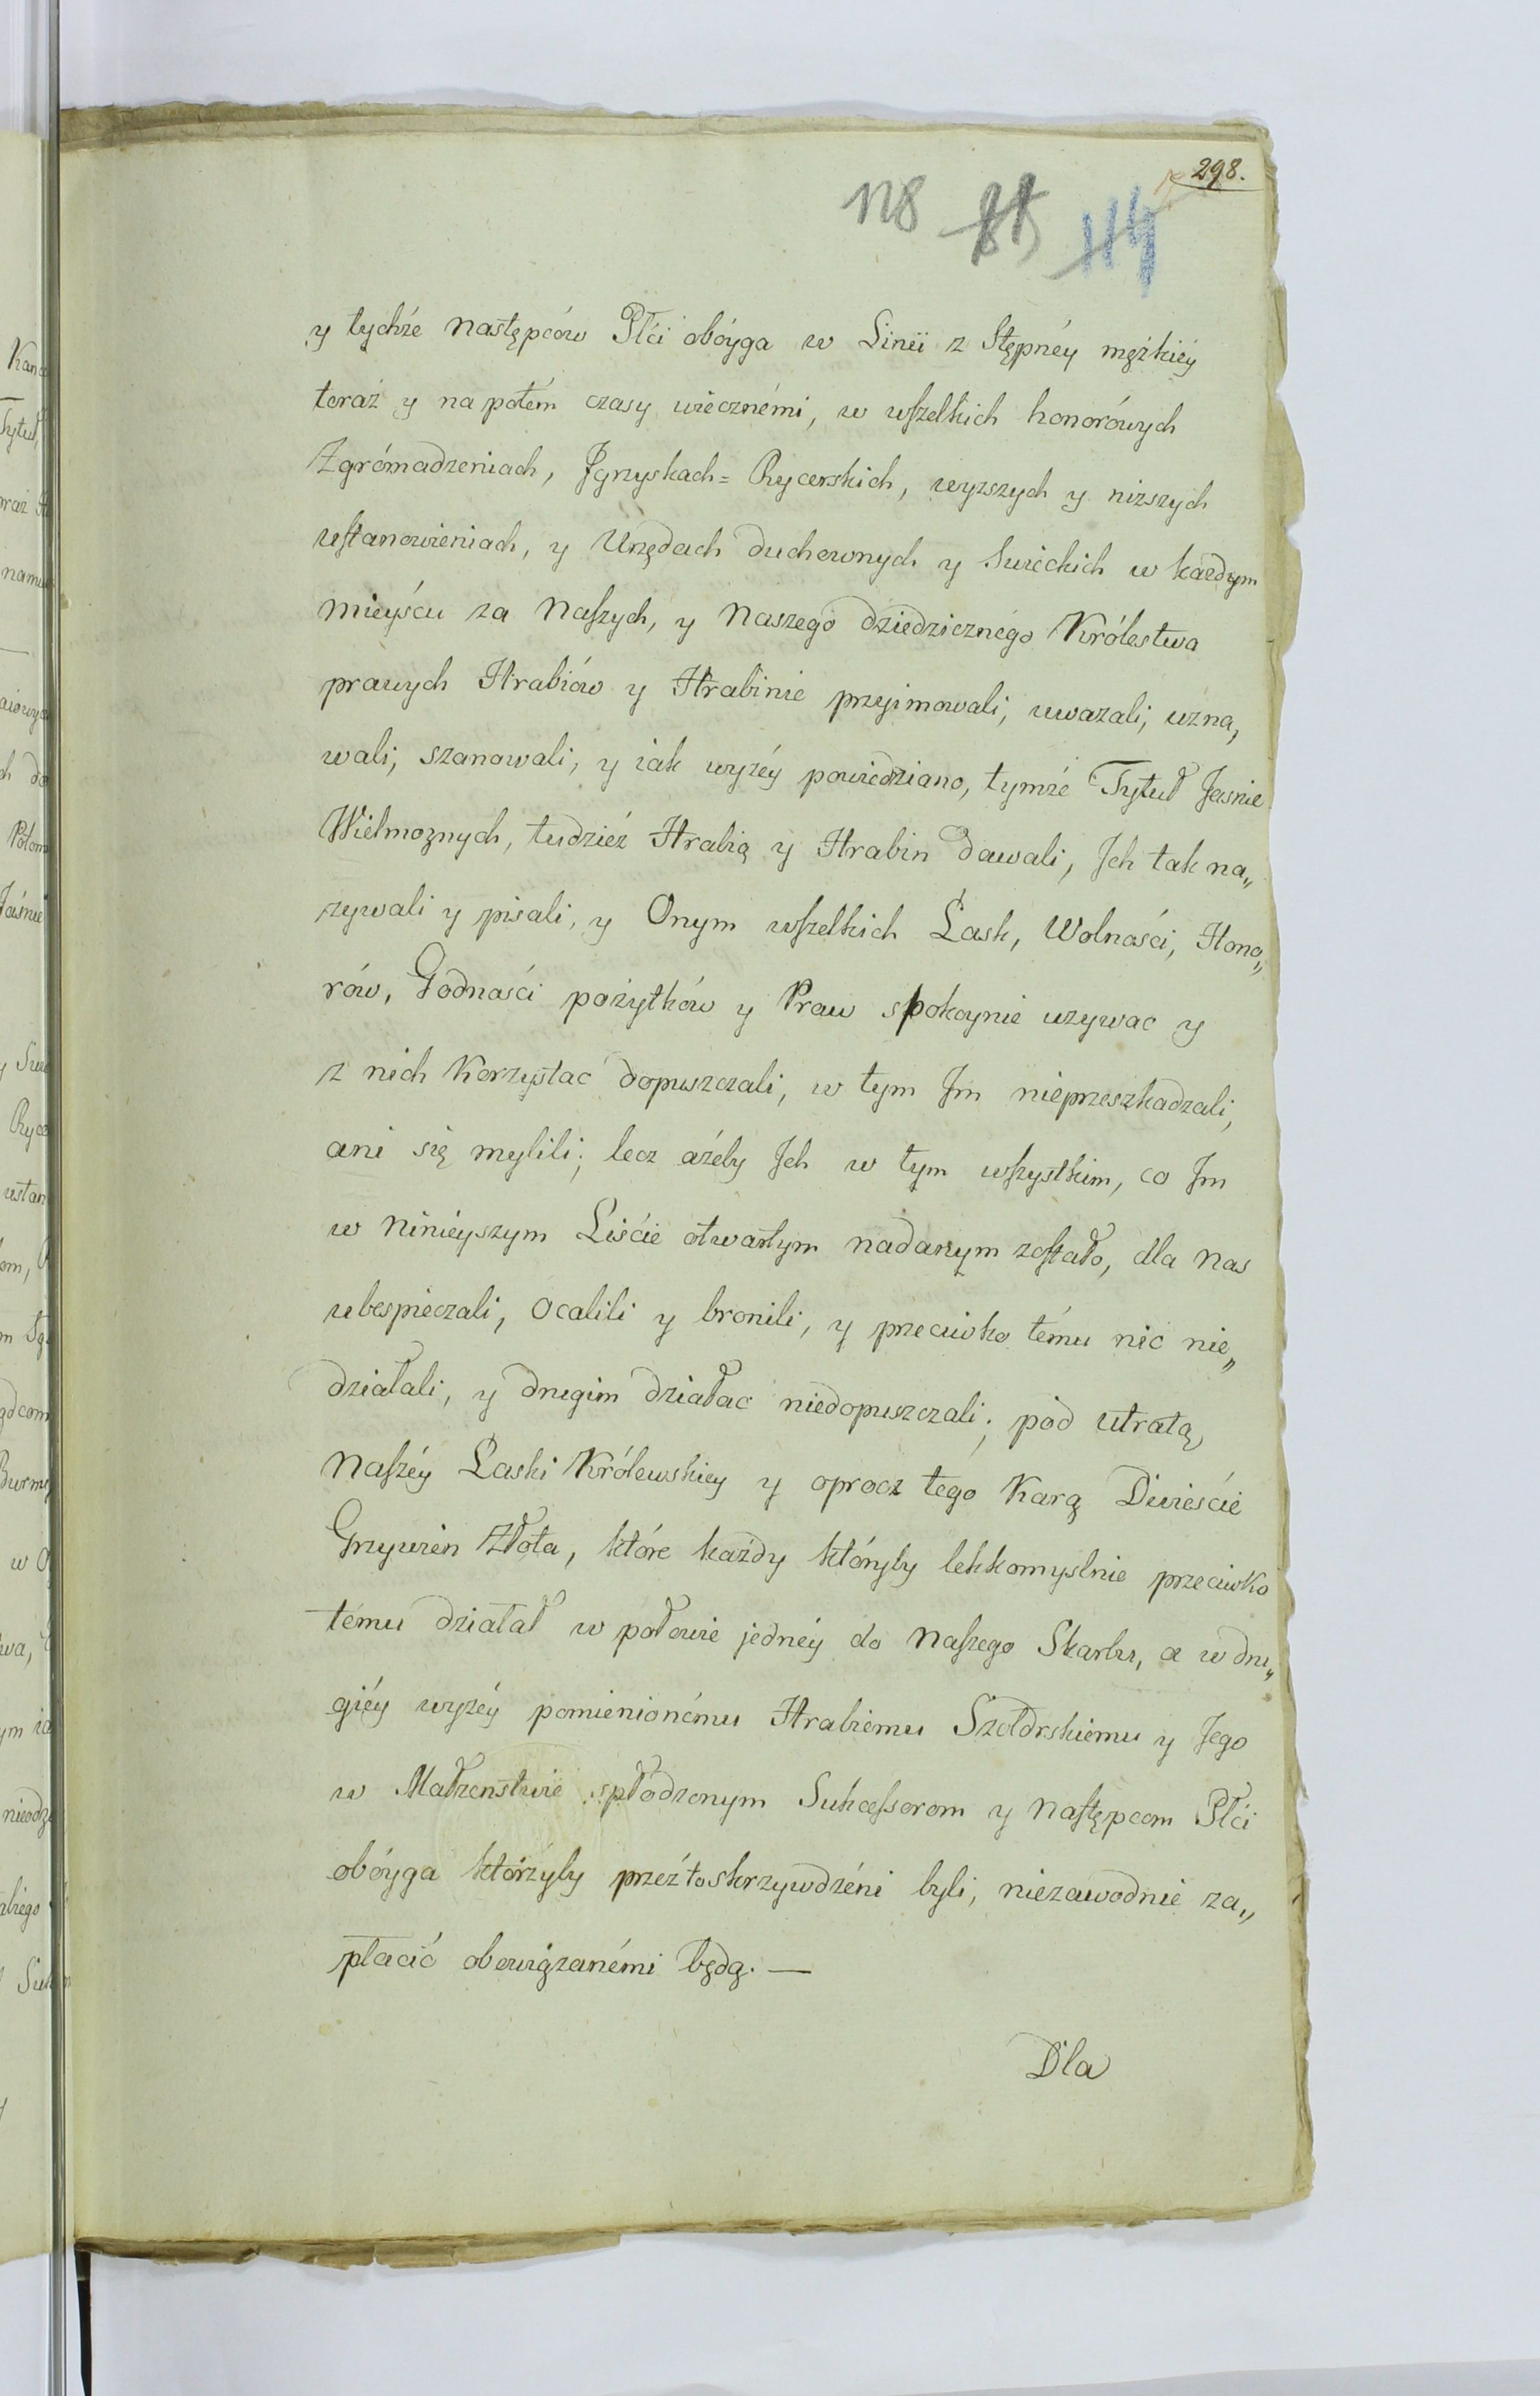 298.
118 85 114
y tychże następców Płći obóyga w Linii z Stępnéy męźkiéy
teraź y na potém czasy wiecznémi, w wszelkich honorówych
Zgrómadzeniach, Jgrzyskach= Rycerskich, wyzszych y nizszych
ustanowieniach, y Urzędach duchownych y Swieckich w kazdym
mieyścu za Naszych, y Naszego dziedzicznégo Królestwa
prawych Hrabiów y Hrabinie przyimowali, uwazali, uzna„
wali, szanowali, y iak wyzéy powiedziano, tymźe Tytuł Jasnie
Wielmoznych, tudzież Hrabią y Hrabin dawali, Jch tak na„
zywali y pisali, y Onym wszelkich Łask, Wolnaści, Hono„
rów, Godnaści pożytków y Praw spokoynie uzywac y
z nich Korzystac dopuszczali, w tym Jm nieprzeszkadzali,
ani się mylili; lecz ażéby Jch w tym wszystkim, co Jm
w Niniéyszym Liście otwartym nadanym zostało, dla Nas
ubespieczali, Ocalili y bronili, y przeciwko tému nic nie„
działali, y drugim działac niedopuszczali; pód utratą,
Naszéy Łaski Królewskiey y oprocz tego Karą Dwieście
Grzywien Złota, które każdy któryby lekkomyslnie przeciwko
tému działał w połowie jednéy do Naszego Skarbu, a w dru„
giéy wyzéy pomienionému Hrabiemu Szołdrskiemu y Jego
w Małzenstwie spłódzonym Sukcessorom y Następcom Płći
obóyga którzyby przeź to skrzywdzéni byli, niezawodnie za„
płacić obowiązanémi będą. —
Dla